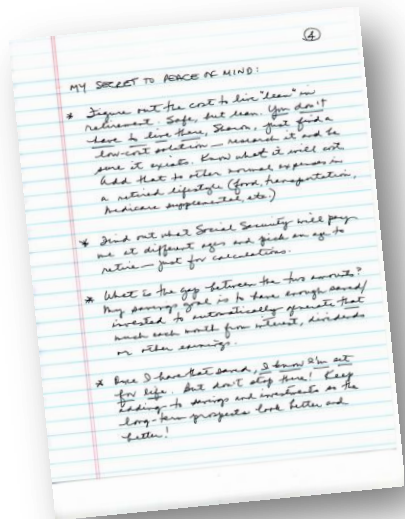 4
MY SECRET TO PEACE OF MIND:
* Figure out the cost to live "lean" in
retirement. Safe, but lean. You don't
have to live there, just find a
low-cost solution — research it and be
sure it exists. Know what it will cost
Add that to other normal expenses in
a retired lifestyle (food, transportation,
medicare supplemental, etc.)
* Find out what Social Security will pay
me at different ages and pick an age to
retire — just for calculations.
* What is the gap between the two amounts?
My savings goal is to have enough saved/
invested to automatically generate that
much each month from interest, dividends
or other earnings.
* Once I have that saved, I know I'm set
for life. But don't stop there! Keep
adding to savings and investments so the
long-term prospects look better and
better!